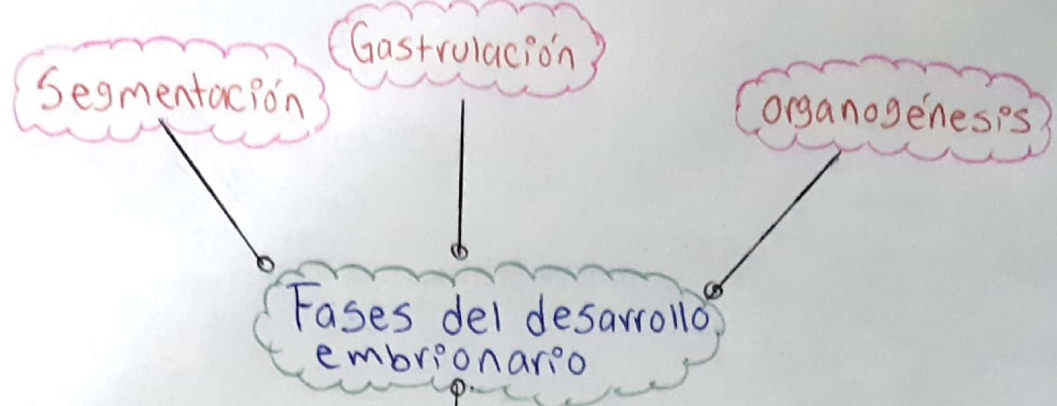 Segmentación
Gastrulación
organogénesis
Fases del desarrollo
embrionario